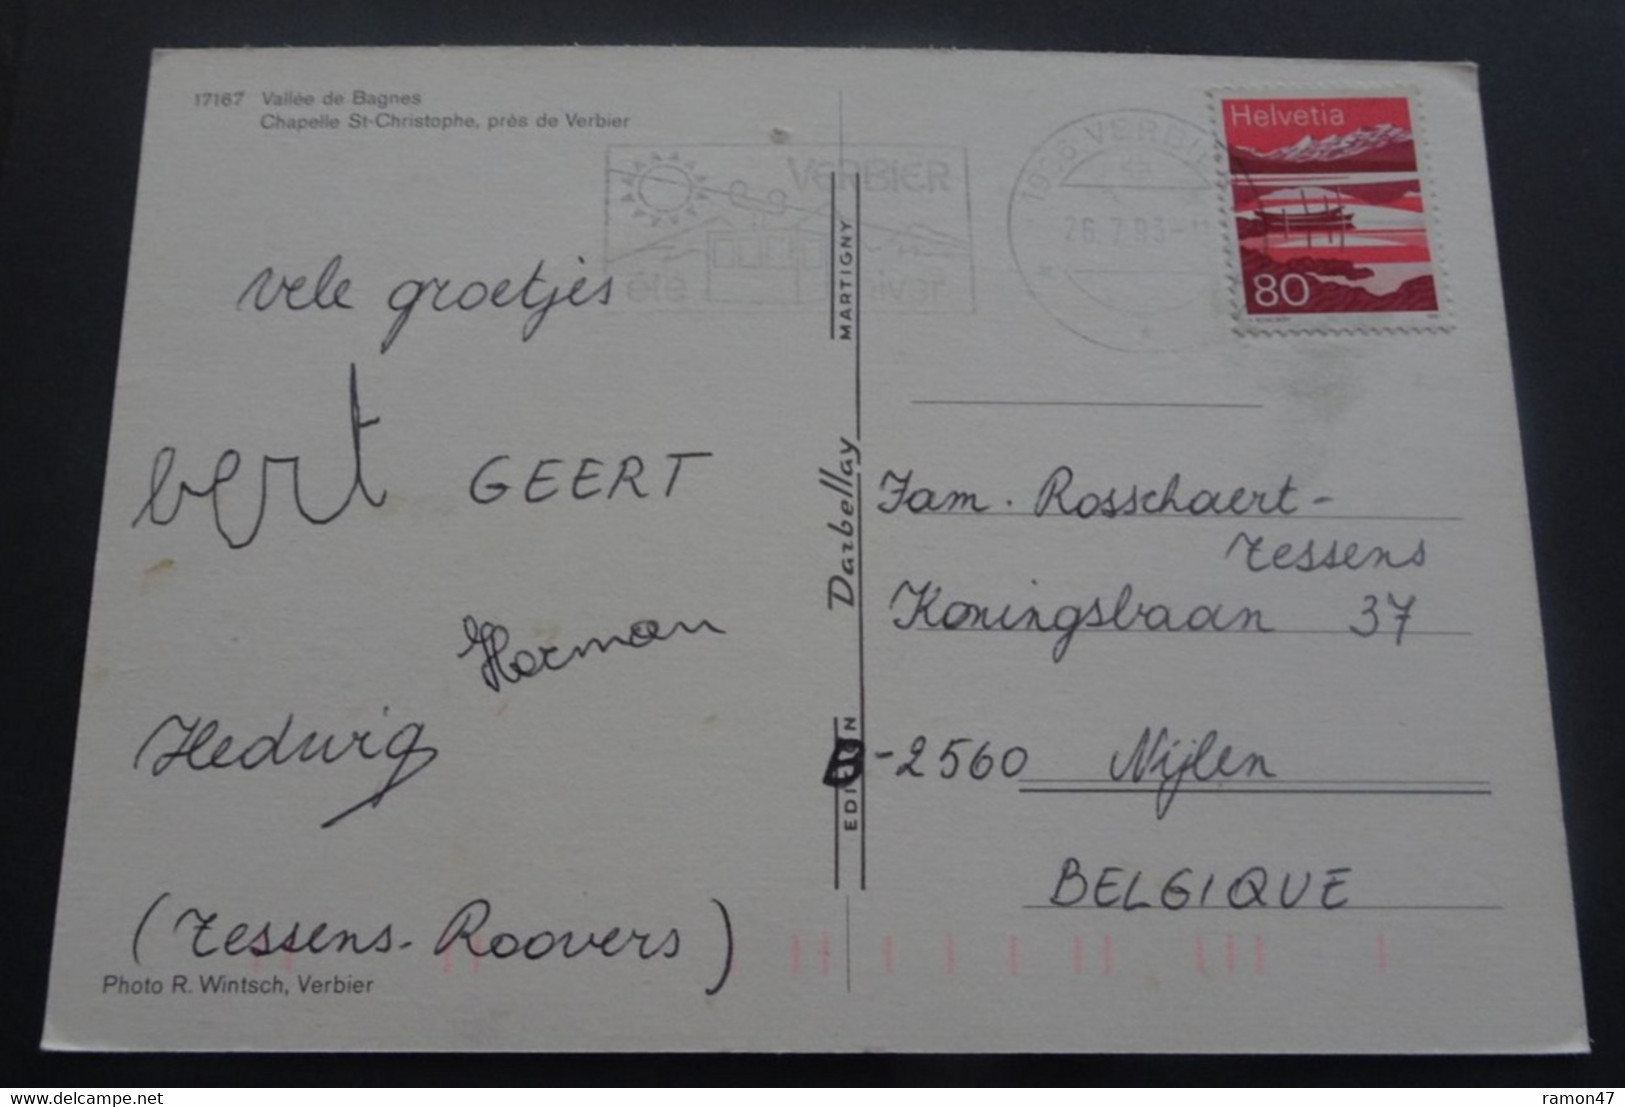 17167 Vallée de Bagnes
Chapelle St-Christophe, près de Verbier
VERBIER
été hiver
1936 VERBIER
26.7.93-11
Helvetia
80
vele groetjes
bert GEERT
Herman
Hedwig
(Tessens-Roovers)
Photo R. Wintsch, Verbier
EDITION Darbellay MARTIGNY
Fam. Rosschaert-
Tessens
Koningsbaan 37
B-2560 Nijlen
BELGIQUE
delcampe.net
ramon47